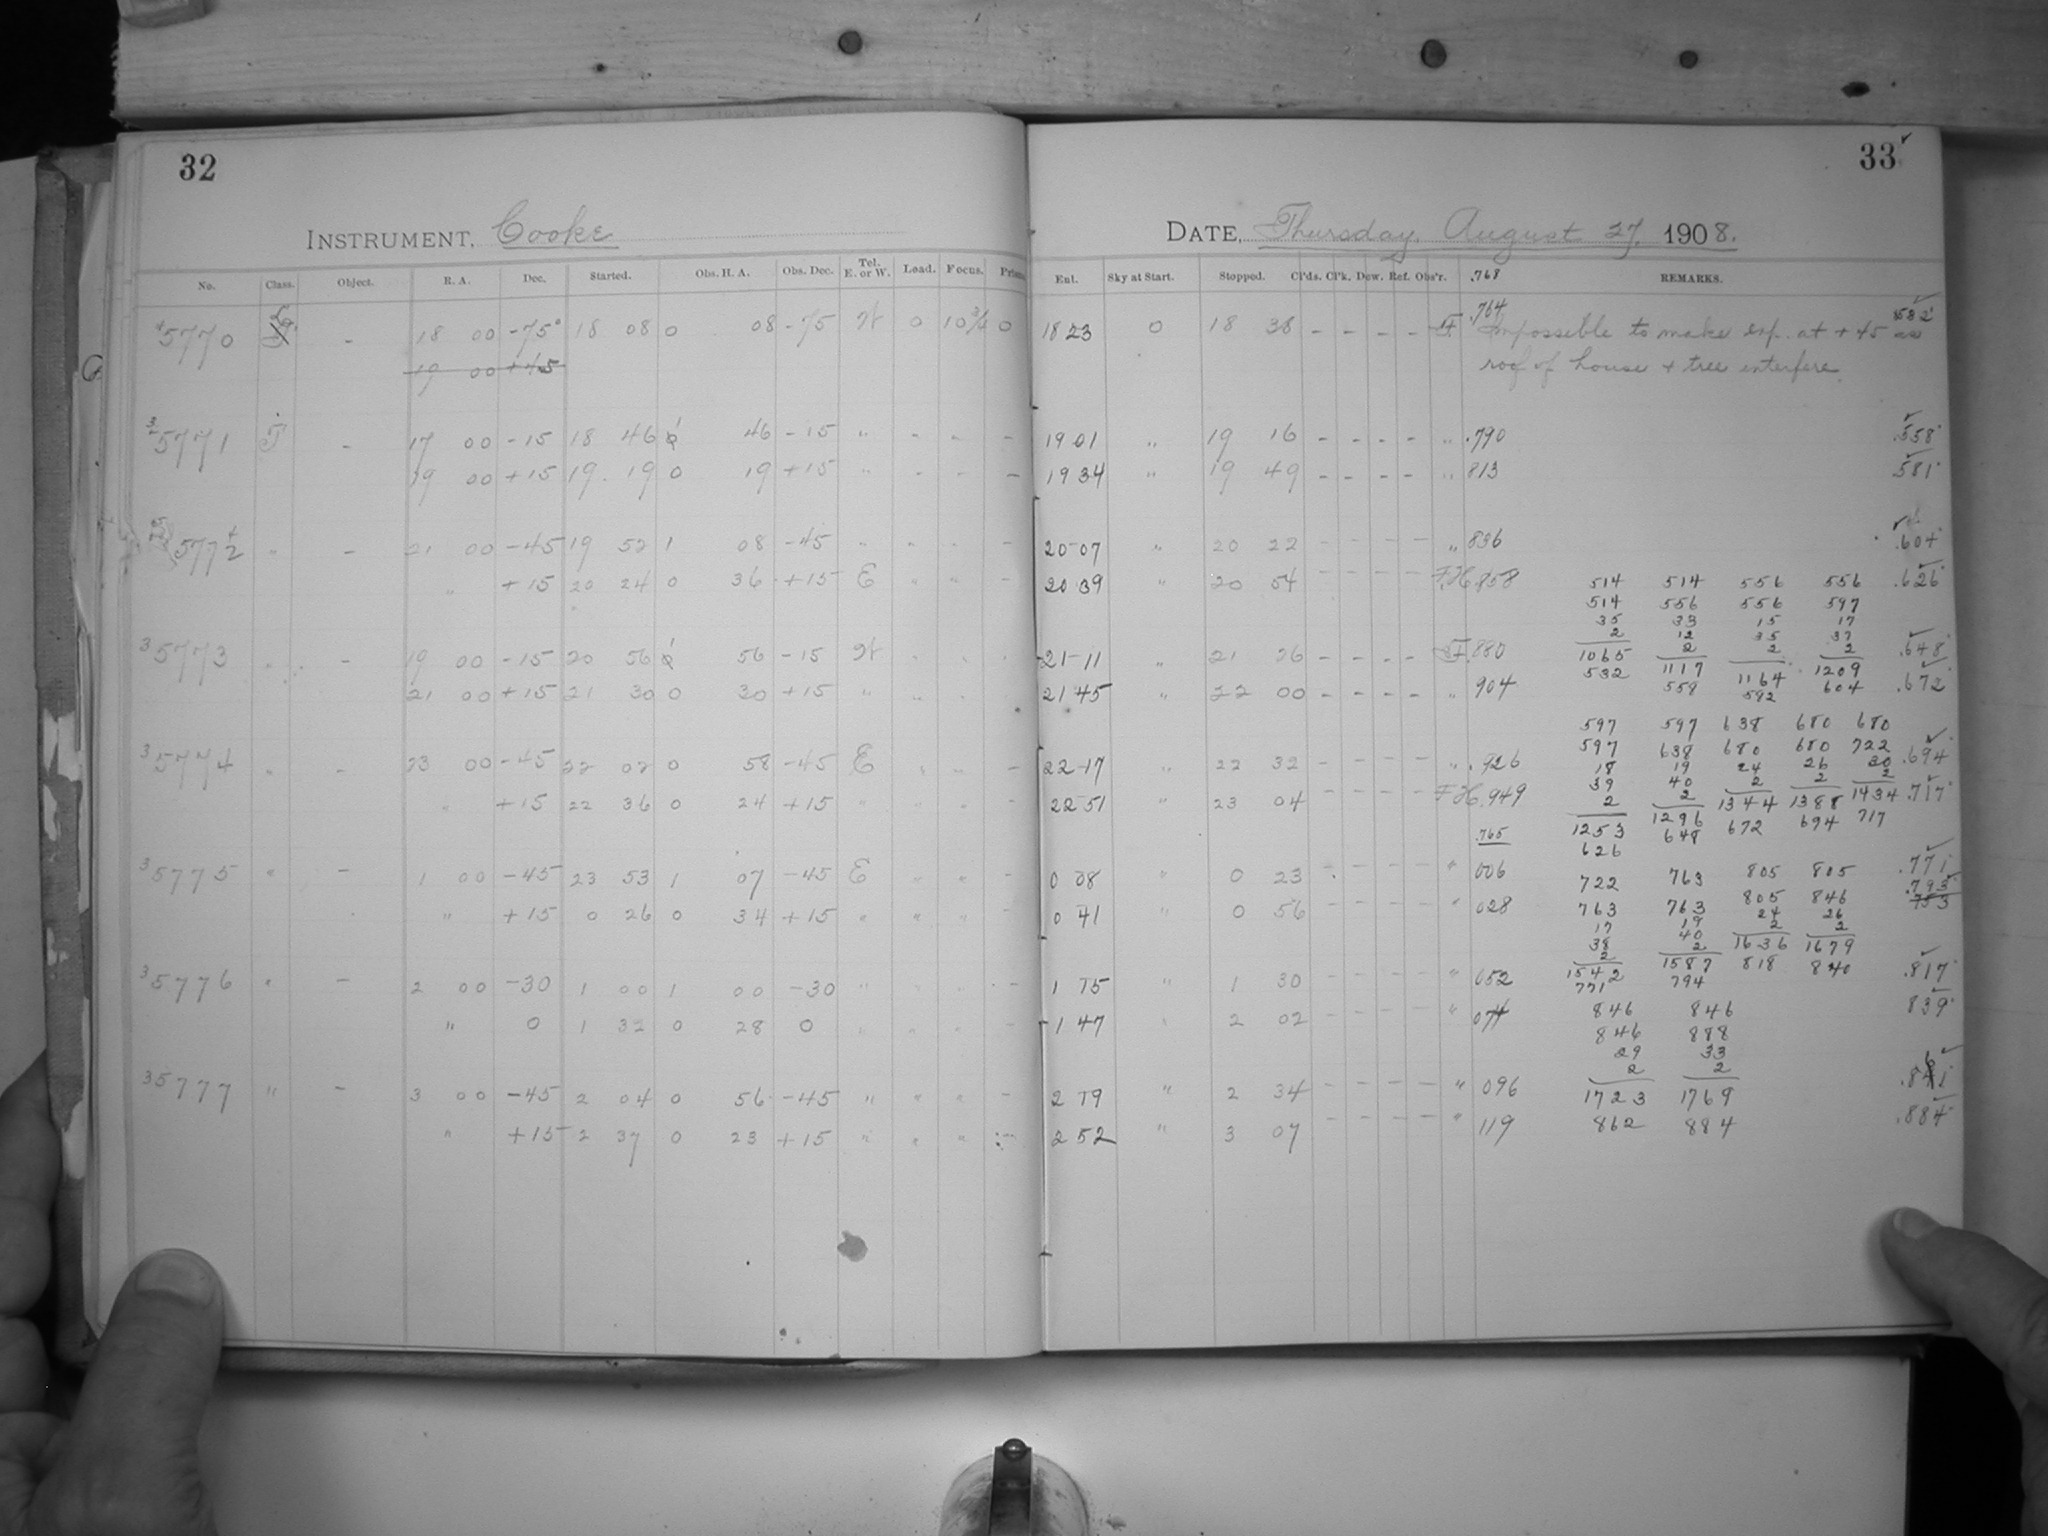 32
33
INSTRUMENT, Cooke
DATE, Thursday, August 27, 1908.
No. Class. Object. R. A. Dec. Started. Obs. H. A. Obs. Dec. Tel. E. or W. Load. Focus. Prism
Ent. Sky at Start. Stopped. Cl'ds. Cl'k. Dew. Ref. Obs'r. .768 REMARKS.
5770 - 18 00 -75° 18 08 0 08 -75 W 0 10 3/4 0 18 23 0 18 38 - - - - .764 Impossible to make exp. at +45 as
19 00 +45 roof of house + tree interfere
35771 - 17 00 -15 18 46 46 -15 " " - - 19 01 " 19 16 - - - - " .790 .558
19 00 +15 19 19 0 19 +15 " - - - 19 34 " 19 49 - - - - " 813 .581
5772 " - 21 00 -45 19 52 1 08 -45 " " " - 20 07 " 20 22 - - - - " 836 .604
" +15 20 24 0 36 +15 E " " 20 39 " 20 54 - - - - 858 514 514 556 556 .626
514 556 556 597
35 33 15 17
2 12 35 37
35773 " - 19 00 -15 20 56 56 -15 W 21 11 " 21 26 - - - - 880 1065 2 2 2 .648
532 1117 1164 1209
21 00 +15 21 30 0 30 +15 " 21 45 " 22 00 - - - - " 904 559 582 604 .672
597 597 638 680 680
597 638 680 680 722
35774 " - 23 00 -45 22 02 0 58 -45 E " " - 22 17 " 22 32 - - - - " .926 18 19 24 26 30 .694
39 40 2 2 2
" +15 22 36 0 24 +15 " " " 22 51 " 23 04 - - - - .949 2 2 1344 1388 1434 .717
.765 1253 1296 672 694 717
626 648
35775 " - 1 00 -45 23 53 1 07 -45 E " " - 0 08 " 0 23 - - - - " 006 722 763 805 805 .771
" +15 0 26 0 34 +15 " " " 0 41 " 0 56 - - - - " 028 763 763 805 846 .793
17 19 24 26
38 40 2 2
2 2 1636 1679
35776 " - 2 00 -30 1 00 1 00 -30 " - 1 15 " 1 30 - - - - " 052 1542 1587 818 840 .817
771 794
" 0 1 32 0 28 0 " - 1 47 2 02 - - - - " 074 846 846 839
846 888
29 33
2 2
35777 " - 3 00 -45 2 04 0 56 -45 " " " - 2 19 " 2 34 - - - - " 096 1723 1769
" +15 2 37 0 23 +15 " " " 2 52 " 3 07 - - - - " 119 862 884 .884